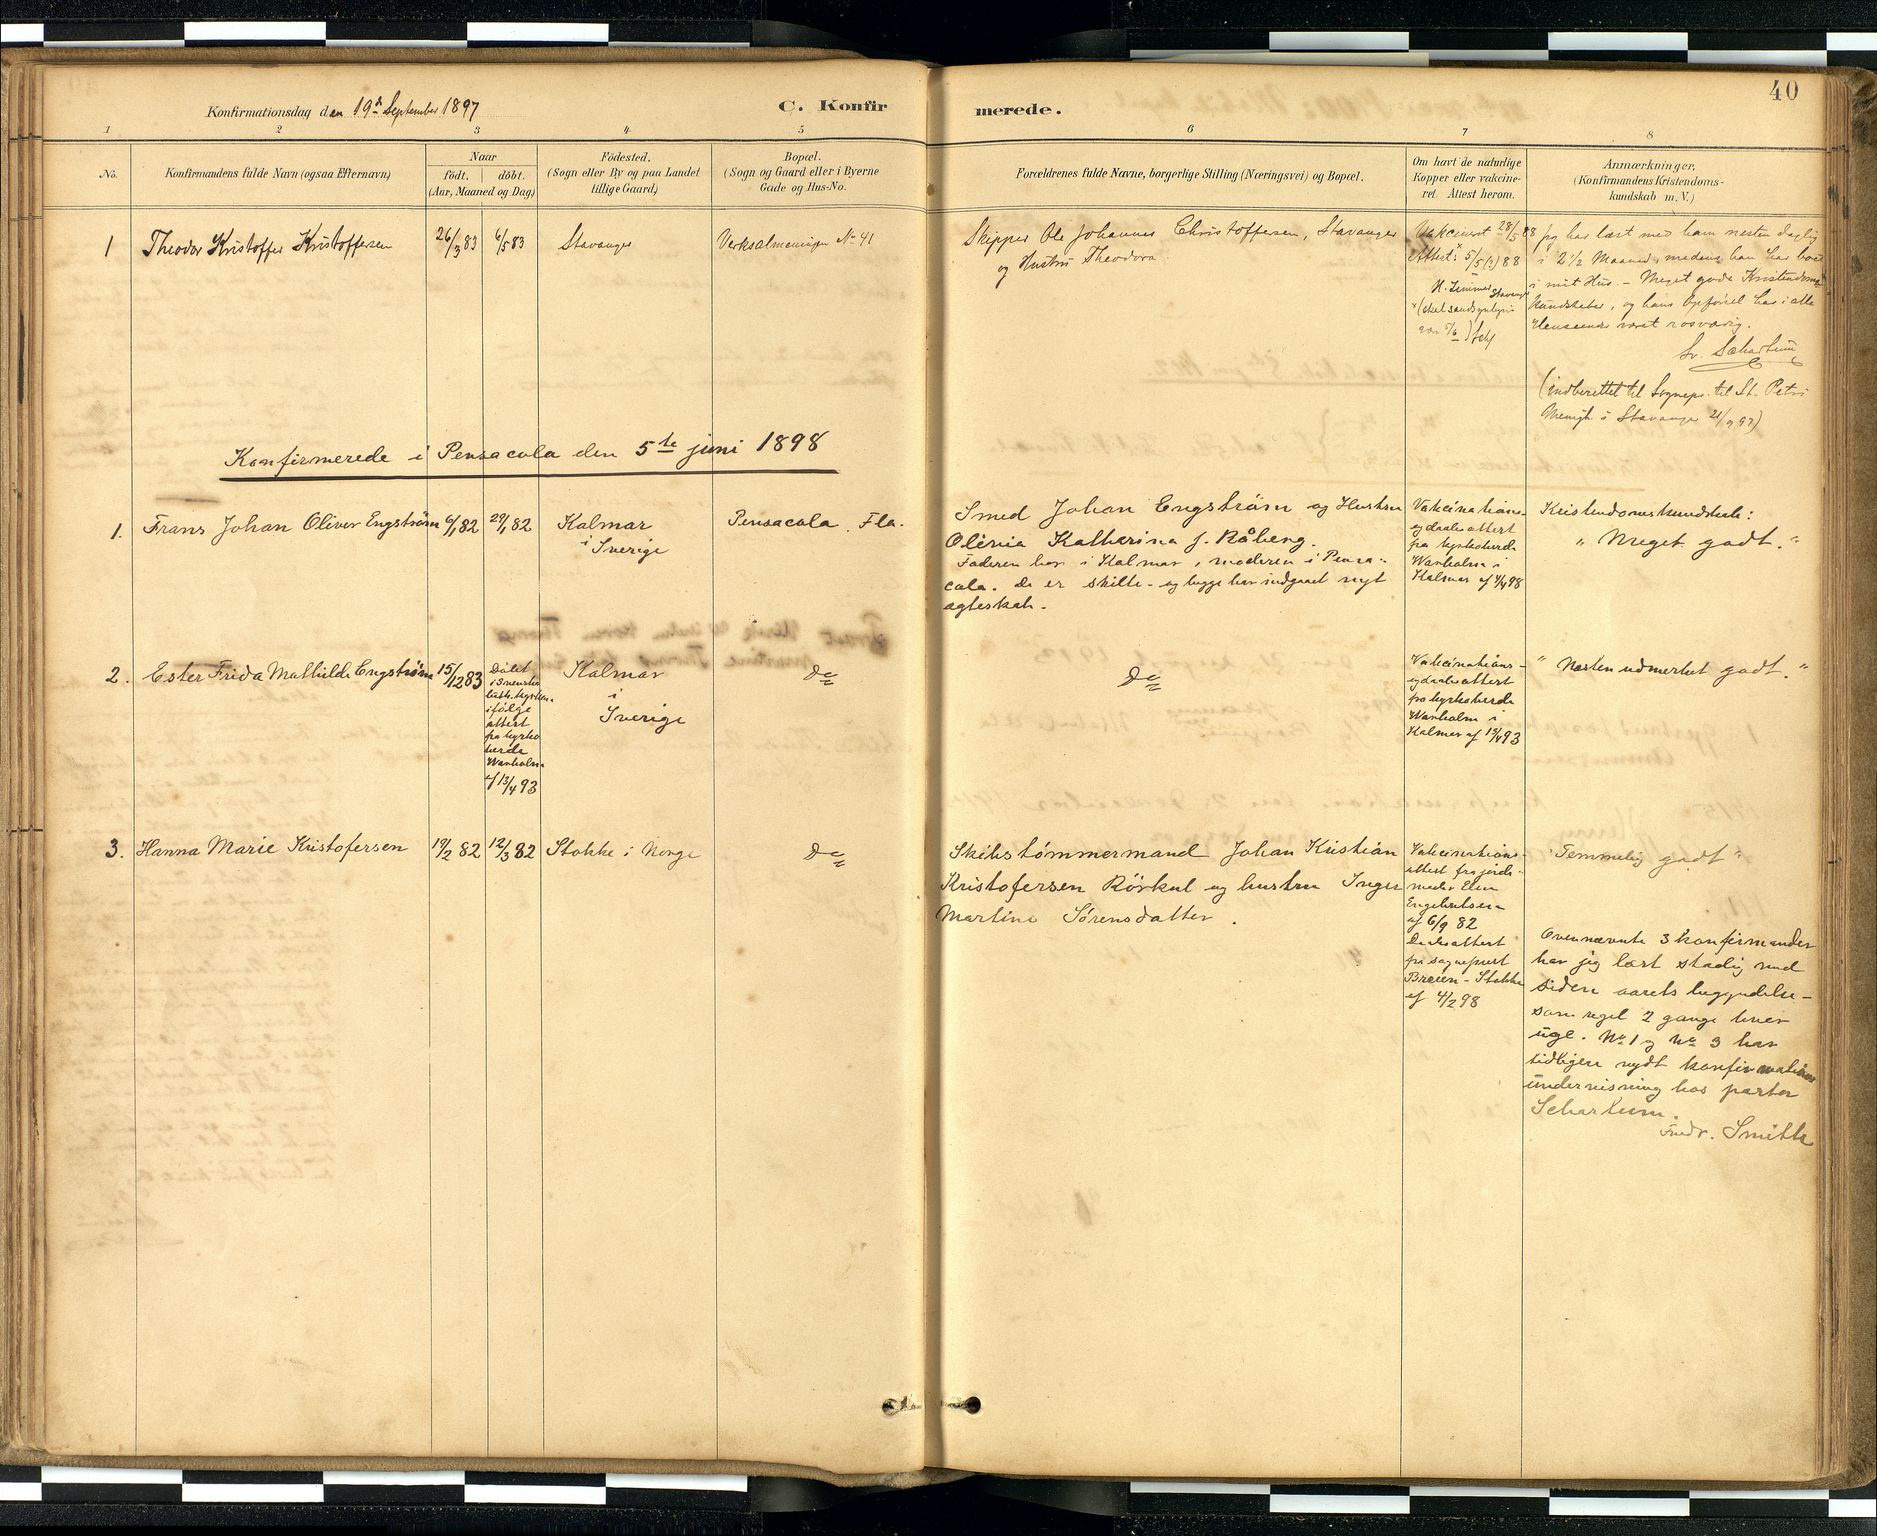 40
Konfirmationsdag den 19de September 1897
C. Konfirmerede.
1 2 3 4 5 6 7 8
No.
Konfirmandens fulde Navn (ogsaa Efternavn)
Naar
födt. döbt.
(Aar, Maaned og Dag)
Födested.
(Sogn eller By og paa Landet
tillige Gaard)
Bopæl.
(Sogn og Gaard eller i Byerne
Gade og Hus-No.
Forældrenes fulde Navne, borgerlige Stilling (Næringsvei) og Bopæl.
Om havt de naturlige
Kopper eller vakcine-
ret. Attest herom.
Anmærkninger.
(Konfirmandens Kristendoms-
kundskab m. V.)
1 Theodor Kristoffer Kristoffersen 26/3 83 6/5 83 Stavanger Verksalmeningen No 41
Skipper Ole Johannes Christoffersen, Stavanger
og Hustru Theodora
Vakcineret 28/5 88
Attest x 5/5 (?) 88
Stavanger
x (skal sandsynligvis
være 5/6)
Jeg har læst med ham nesten daglig
i 2 1/2 Maaned, medens han har boet
i mit Hus. - Meget gode Kristendoms-
kundskaber, og hans Opförsel har i alle
Henseende været rosværdig.
Schartum
(indberettet til Sognepr. til St. Petri
Menigh. i Stavanger 21/9 97)
Konfirmerede i Pensacola den 5te juni 1898
1. Frans Johan Oliver Engström 6/1 82 29/1 82 Kalmar
i Sverige
Pensacola. Fla.
Smed Johan Engström og Hustru
Olivia Katharina f. Råberg.
Faderen bor i Kalmar, moderen i Pensa-
cola. De er skilte - og begge har indgaaet nyt
ægteskab.
Vakcinations-
og daabsattest
fra kyrkoherde
Warholm i
Kalmar af 4/4 98
Kristendomskundskab:
" Meget godt. "
2. Ester Frida Mathilde Engström 15/12 83
Döbt
i svenska
luth. kyrkan
ifölge
attest
fra kyrko
herde
Warholm
af 13/4 93
Kalmar
i
Sverige
Do
Do
Vakcinations-
og daabsattest
fra kyrkoherde
Warholm i
Kalmar af 13/4 93
" Nesten udmerket godt. "
3. Hanna Marie Kristofersen 19/2 82 12/3 82 Stokke i Norge Do
Skibstömmermand Johan Kristian
Kristofersen Rörkul og hustru Inger
Martine Sörensdatter.
Vakcinations-
attest fra jorde-
moder Elen
Engebretsen
af 6/9 82
Daabsattest
fra sogneprest
Breien - Stokke
af 4/2 98
" Temmelig godt "
Ovennævnte 3 konfirmander
har jeg læst stadig med
siden aarets begyndelse -
som regel 2 gange hver
uge. No 1 og No 3 har
tidligere nydt konfirmations
undervisning hos pastor
Schartum.
Fredr. Smith